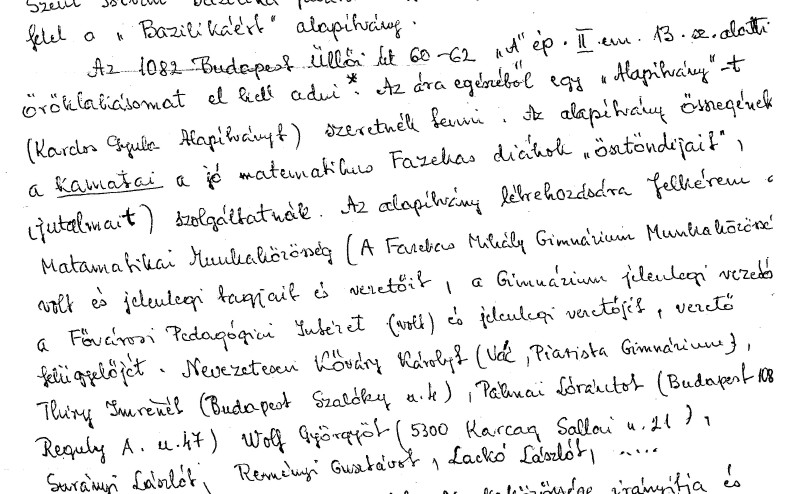 felel a „Bazilikáért" alapítvány.
Az 1082 Budapest Üllői út 60-62 „A" ép. II. em. 13. sz. alatti
öröklakásomat el kell adni*. Az ára egészéből egy „Alapítvány"-t
(Kardos Gyula Alapítványt) szeretnék tenni. Az alapítvány összegének
a kamatai a jó matematikus Fazekas diákok „ösztöndíjait",
(jutalmait) szolgáltatnák. Az alapítvány létrehozására felkérem a
Matamatikai Munkaközösség (A Fazekas Mihály Gimnázium Munkaközössé
volt és jelenlegi tagjait és vezetőit, a Gimnázium jelenlegi vezető
a Fővárosi Pedagógiai Intézet (volt) és jelenlegi vezetőjét, vezető
felügyelőjét. Nevezetesen Kőváry Károlyt (Vác, Piarista Gimnázium),
Thiry Imrénét (Budapest Szalóky u. 4), Pálmai Lórántot (Budapest 108
Reguly A. u. 47) Wolf Györgyöt (5300 Karcag Sallai u. 21),
Surányi Lászlót, Reményi Gusztávot, Lackó Lászlót, .....
irányítja és